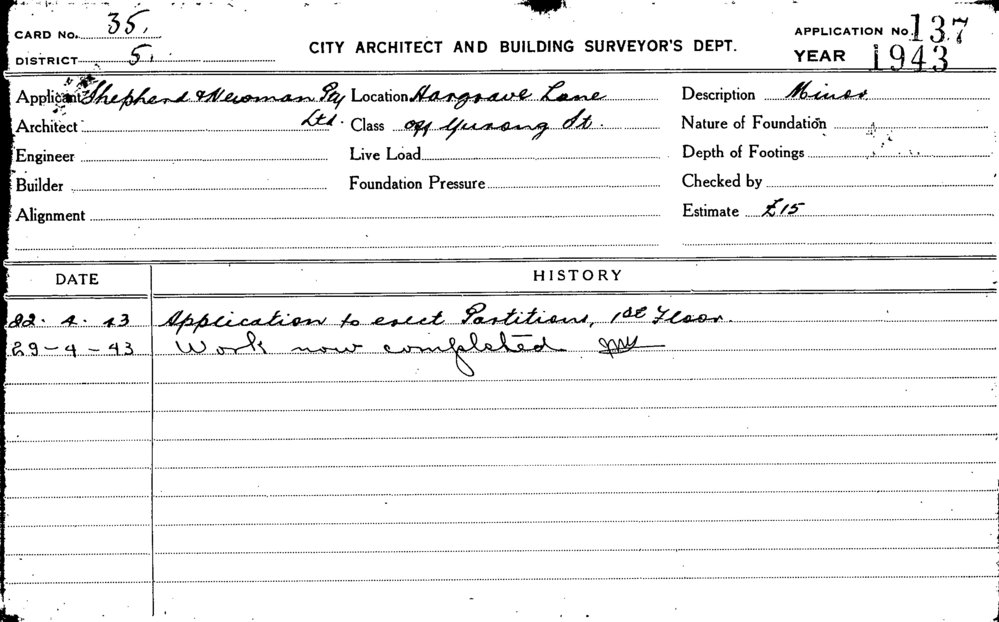 CARD No. 35.
APPLICATION No. 137
DISTRICT 5.
CITY ARCHITECT AND BUILDING SURVEYOR'S DEPT.
YEAR 1943
Applicant Shepherd & Newman Pty Ltd. Location Hargrave Lane Description Minor
Architect Class off Yurong St. Nature of Foundation
Engineer Live Load Depth of Footings
Builder Foundation Pressure Checked by
Alignment Estimate £15
DATE HISTORY
22. 4. 43 Application to erect Partitions, 1st Floor.
29-4-43 Work now completed